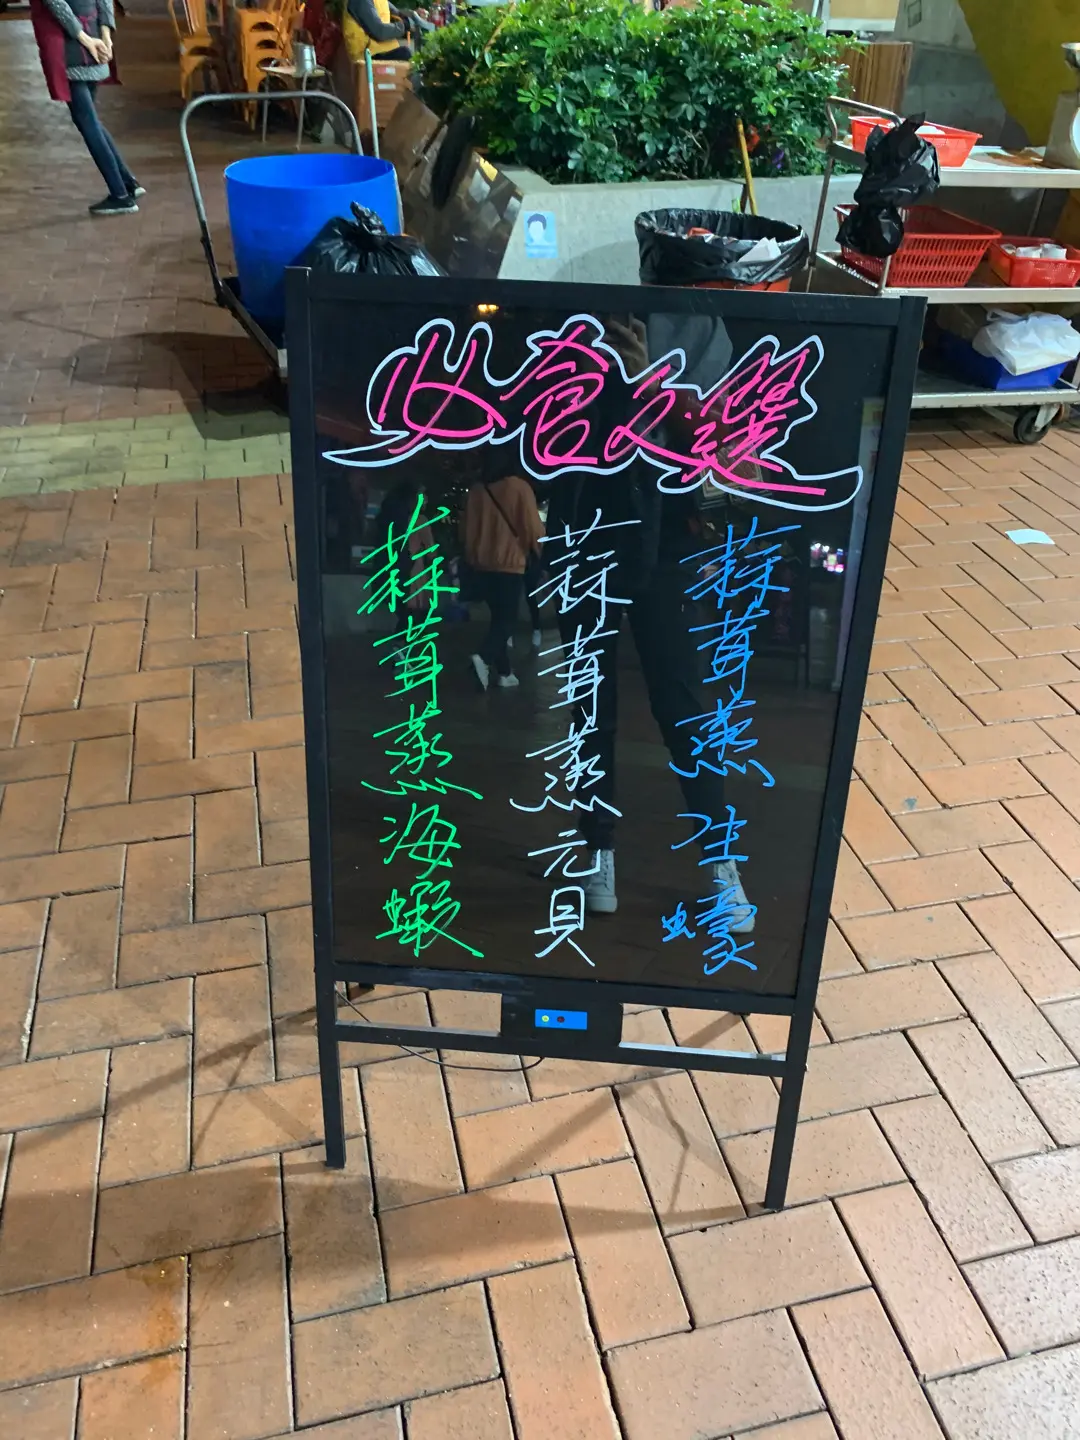 必食之選
蒜茸蒸生蠔
蒜茸蒸元貝
蒜茸蒸海蝦